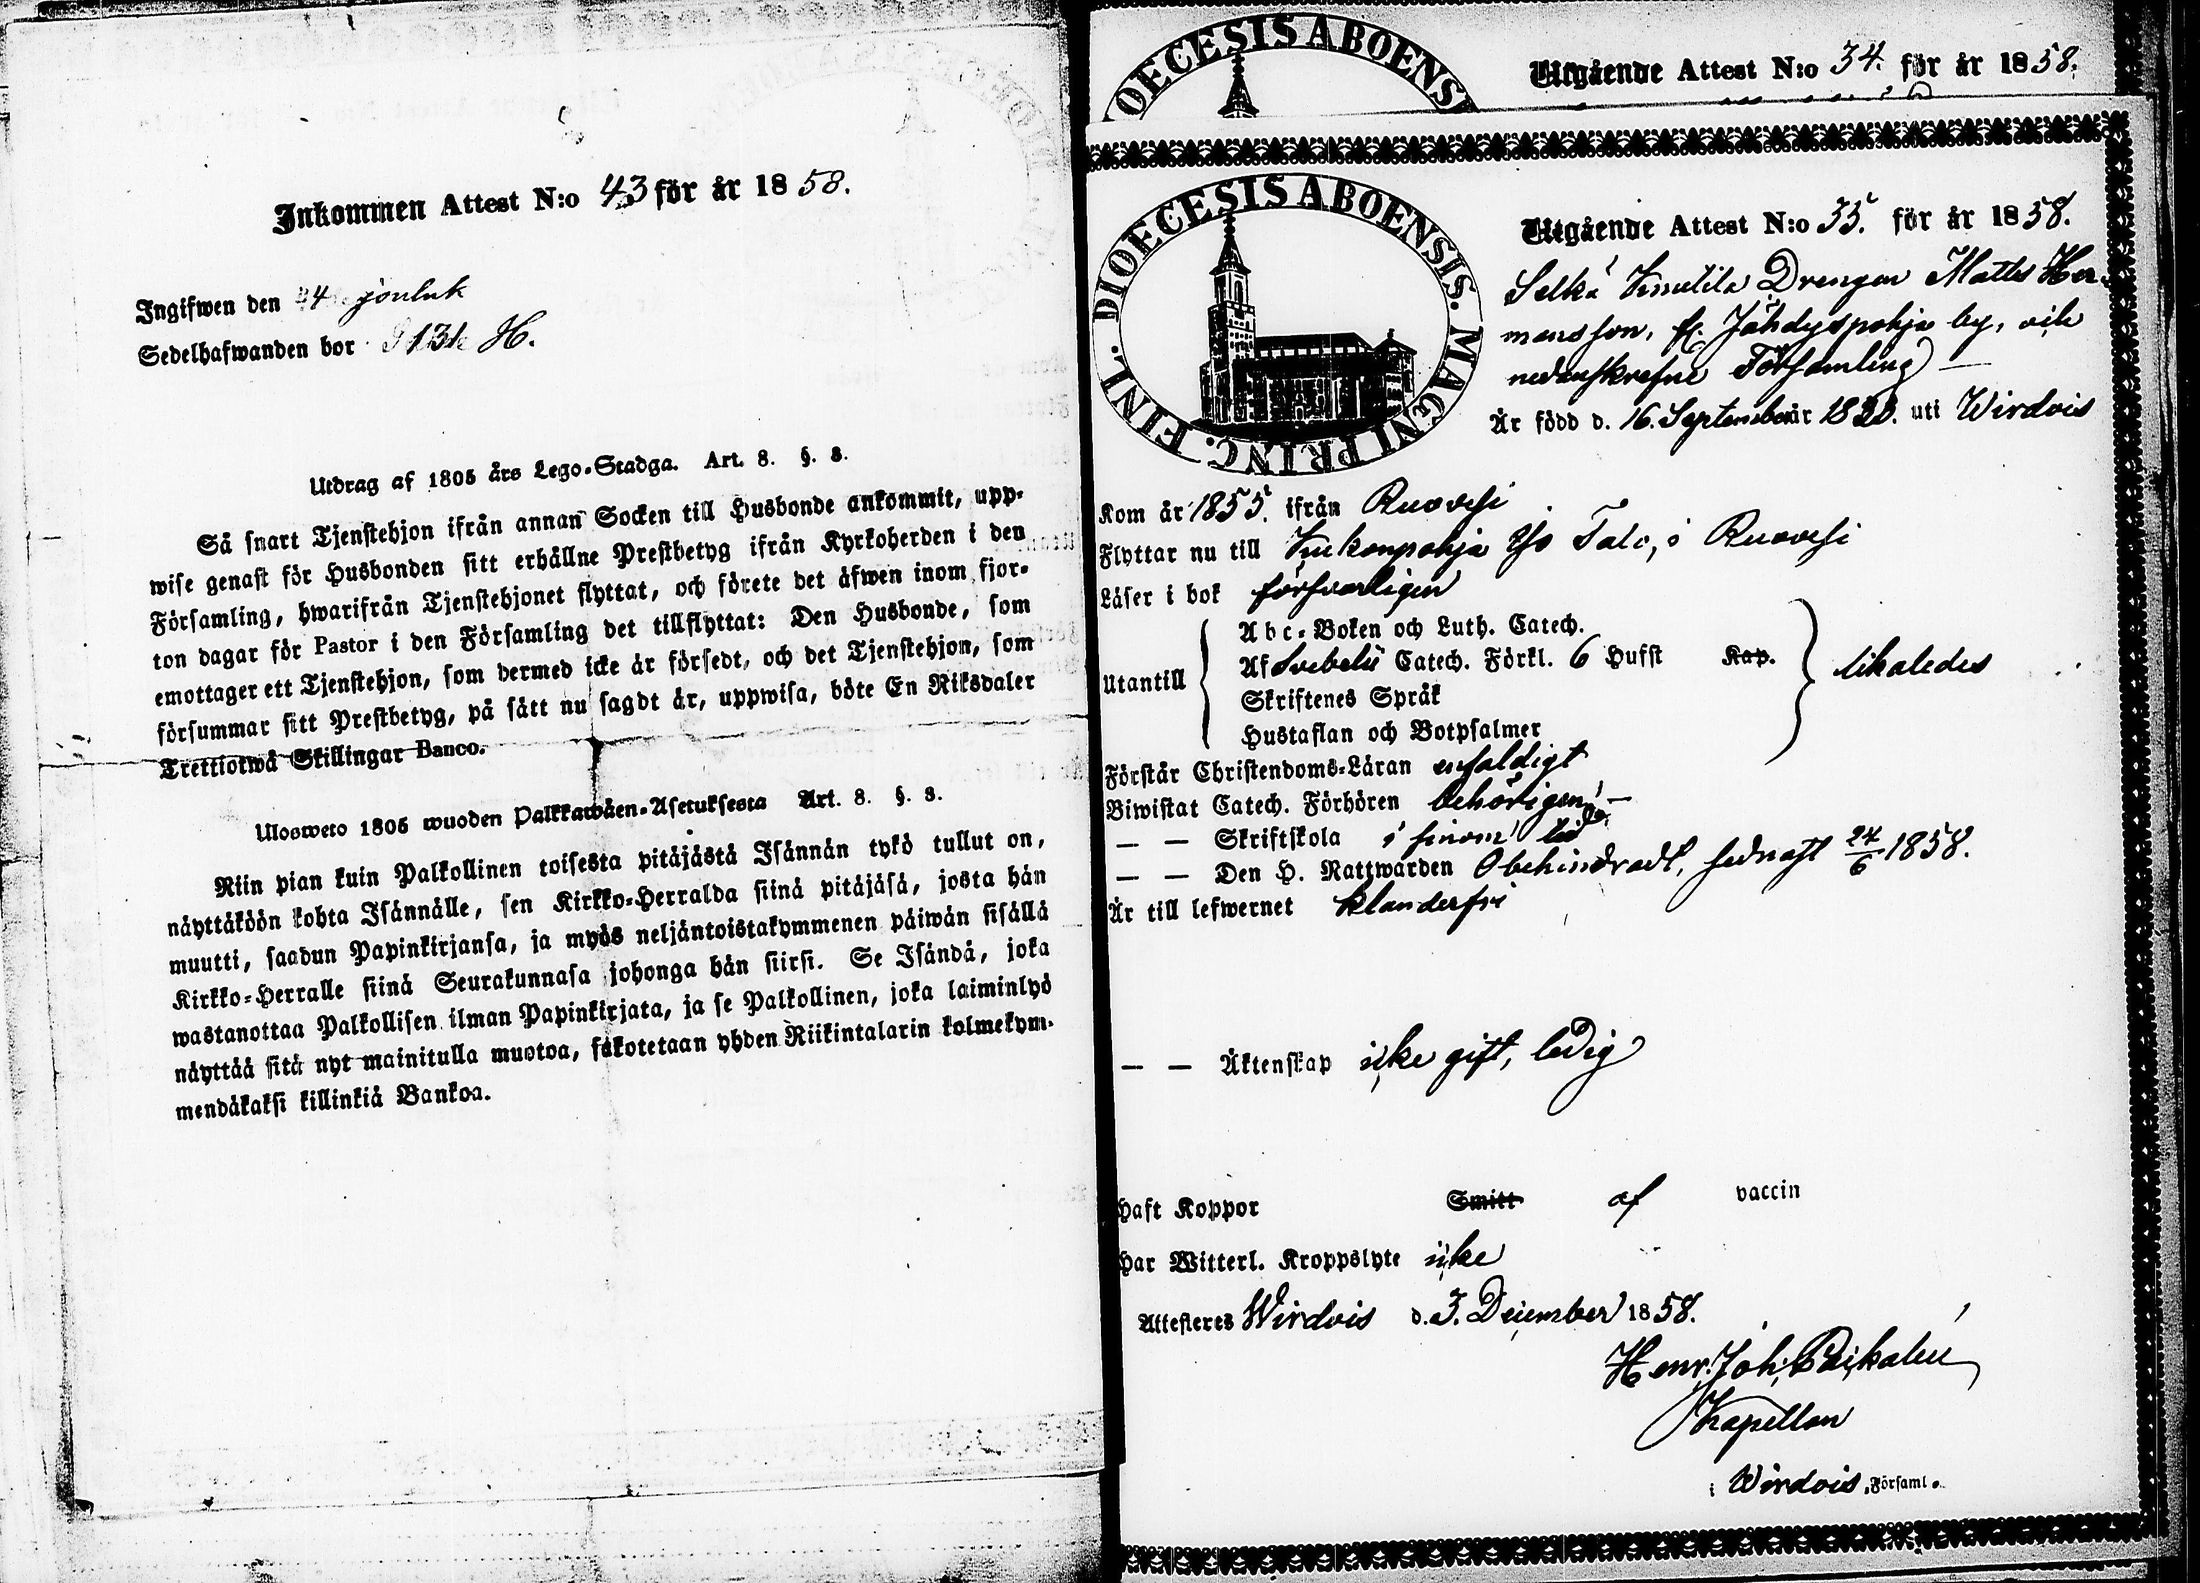 Inkommen Attest N:o 43 för år 1858.
Ingifwen den 24 jouluk
Sedelhafwanden bor H.
Utdrag af 1805 års Lego-Stadga. Art. 8. §. 8.
Så snart Tjenstehjon ifrån annan Socken till Husbonde ankommit, upp-
wise genast för Husbonden sitt erhållne Prestbetyg ifrån Kyrkoherden i den
Församling, hwarifrån Tjenstehjonet flyttat, och förete det äfwen inom fjor-
ton dagar för Pastor i den Församling det tillflyttat: Den Husbonde, som
emottager ett Tjenstehjon, som dermed icke är försedt, och det Tjenstehjon, som
försummar sitt Prestbetyg, på sätt nu sagdt är, uppwisa, böte En Riksdaler
Trettiotwå Skillingar Banco.
Ulosweto 1805 wuoden Palkkawäen-Asetuksesta Art. 8. §. 8.
Niin pian kuin Palkollinen toisesta pitäjästä Isännän tykö tullut on,
näyttäköön kohta Isännälle, sen Kirkko-Herralda siinä pitäjäsä, josta hän
muutti, saadun Papinkirjansa, ja myös neljäntoistakymmenen päiwän sisällä
Kirkko-Herralle siinä Seurakunnasa johonga hän siirsi. Se Isändä, joka
wastanottaa Palkollisen ilman Papinkirjata, ja se Palkollinen, joka laiminlyö
näyttää sitä nyt mainitulla muotoa, sakotetaan yhden Riikintalarin kolmekym-
mendäkaksi killinkiä Bankoa.
DIOECESIS ABOENSIS
Utgående Attest N:o 34. för år 1858.
DIOECESIS ABOENSIS. MAGNI PRINC. FINL.
Utgående Attest N:o 35. för år 1858.
Drengen Matts Her-
mansson, fr. Jähdyspohja by, och
nedanskrefne Församling
Är född d. 16. September år 18 uti Wirdois
Kom år 1855. ifrån Ruovesi
Flyttar nu till Kukonpohja Yso Talo, i Ruovesi
Läser i bok försvarligen
Utantill
Abc-Boken och Luth. Catech.
Af Svebelii Catech. Förkl. 6 Hufst Kap.
Skriftenes Språk
Hustaflan och Botpsalmer
likaledes
Förstår Christendoms-Läran enfaldigt
Biwistat Catech. Förhören behörigen
— — Skriftskola i sinom tid
— — Den H. Nattwarden Obehindradt, sednast 24/6 1858.
Är till lefwernet klanderfri
— — Äktenskap icke gift, ledig
Haft Koppor Smitt af vaccin
Har Witterl. Kroppslyte icke
Attesteres Wirdois d. 3. December 1858.
Henr. Joh.
Kapellan
i Wirdois Församl.